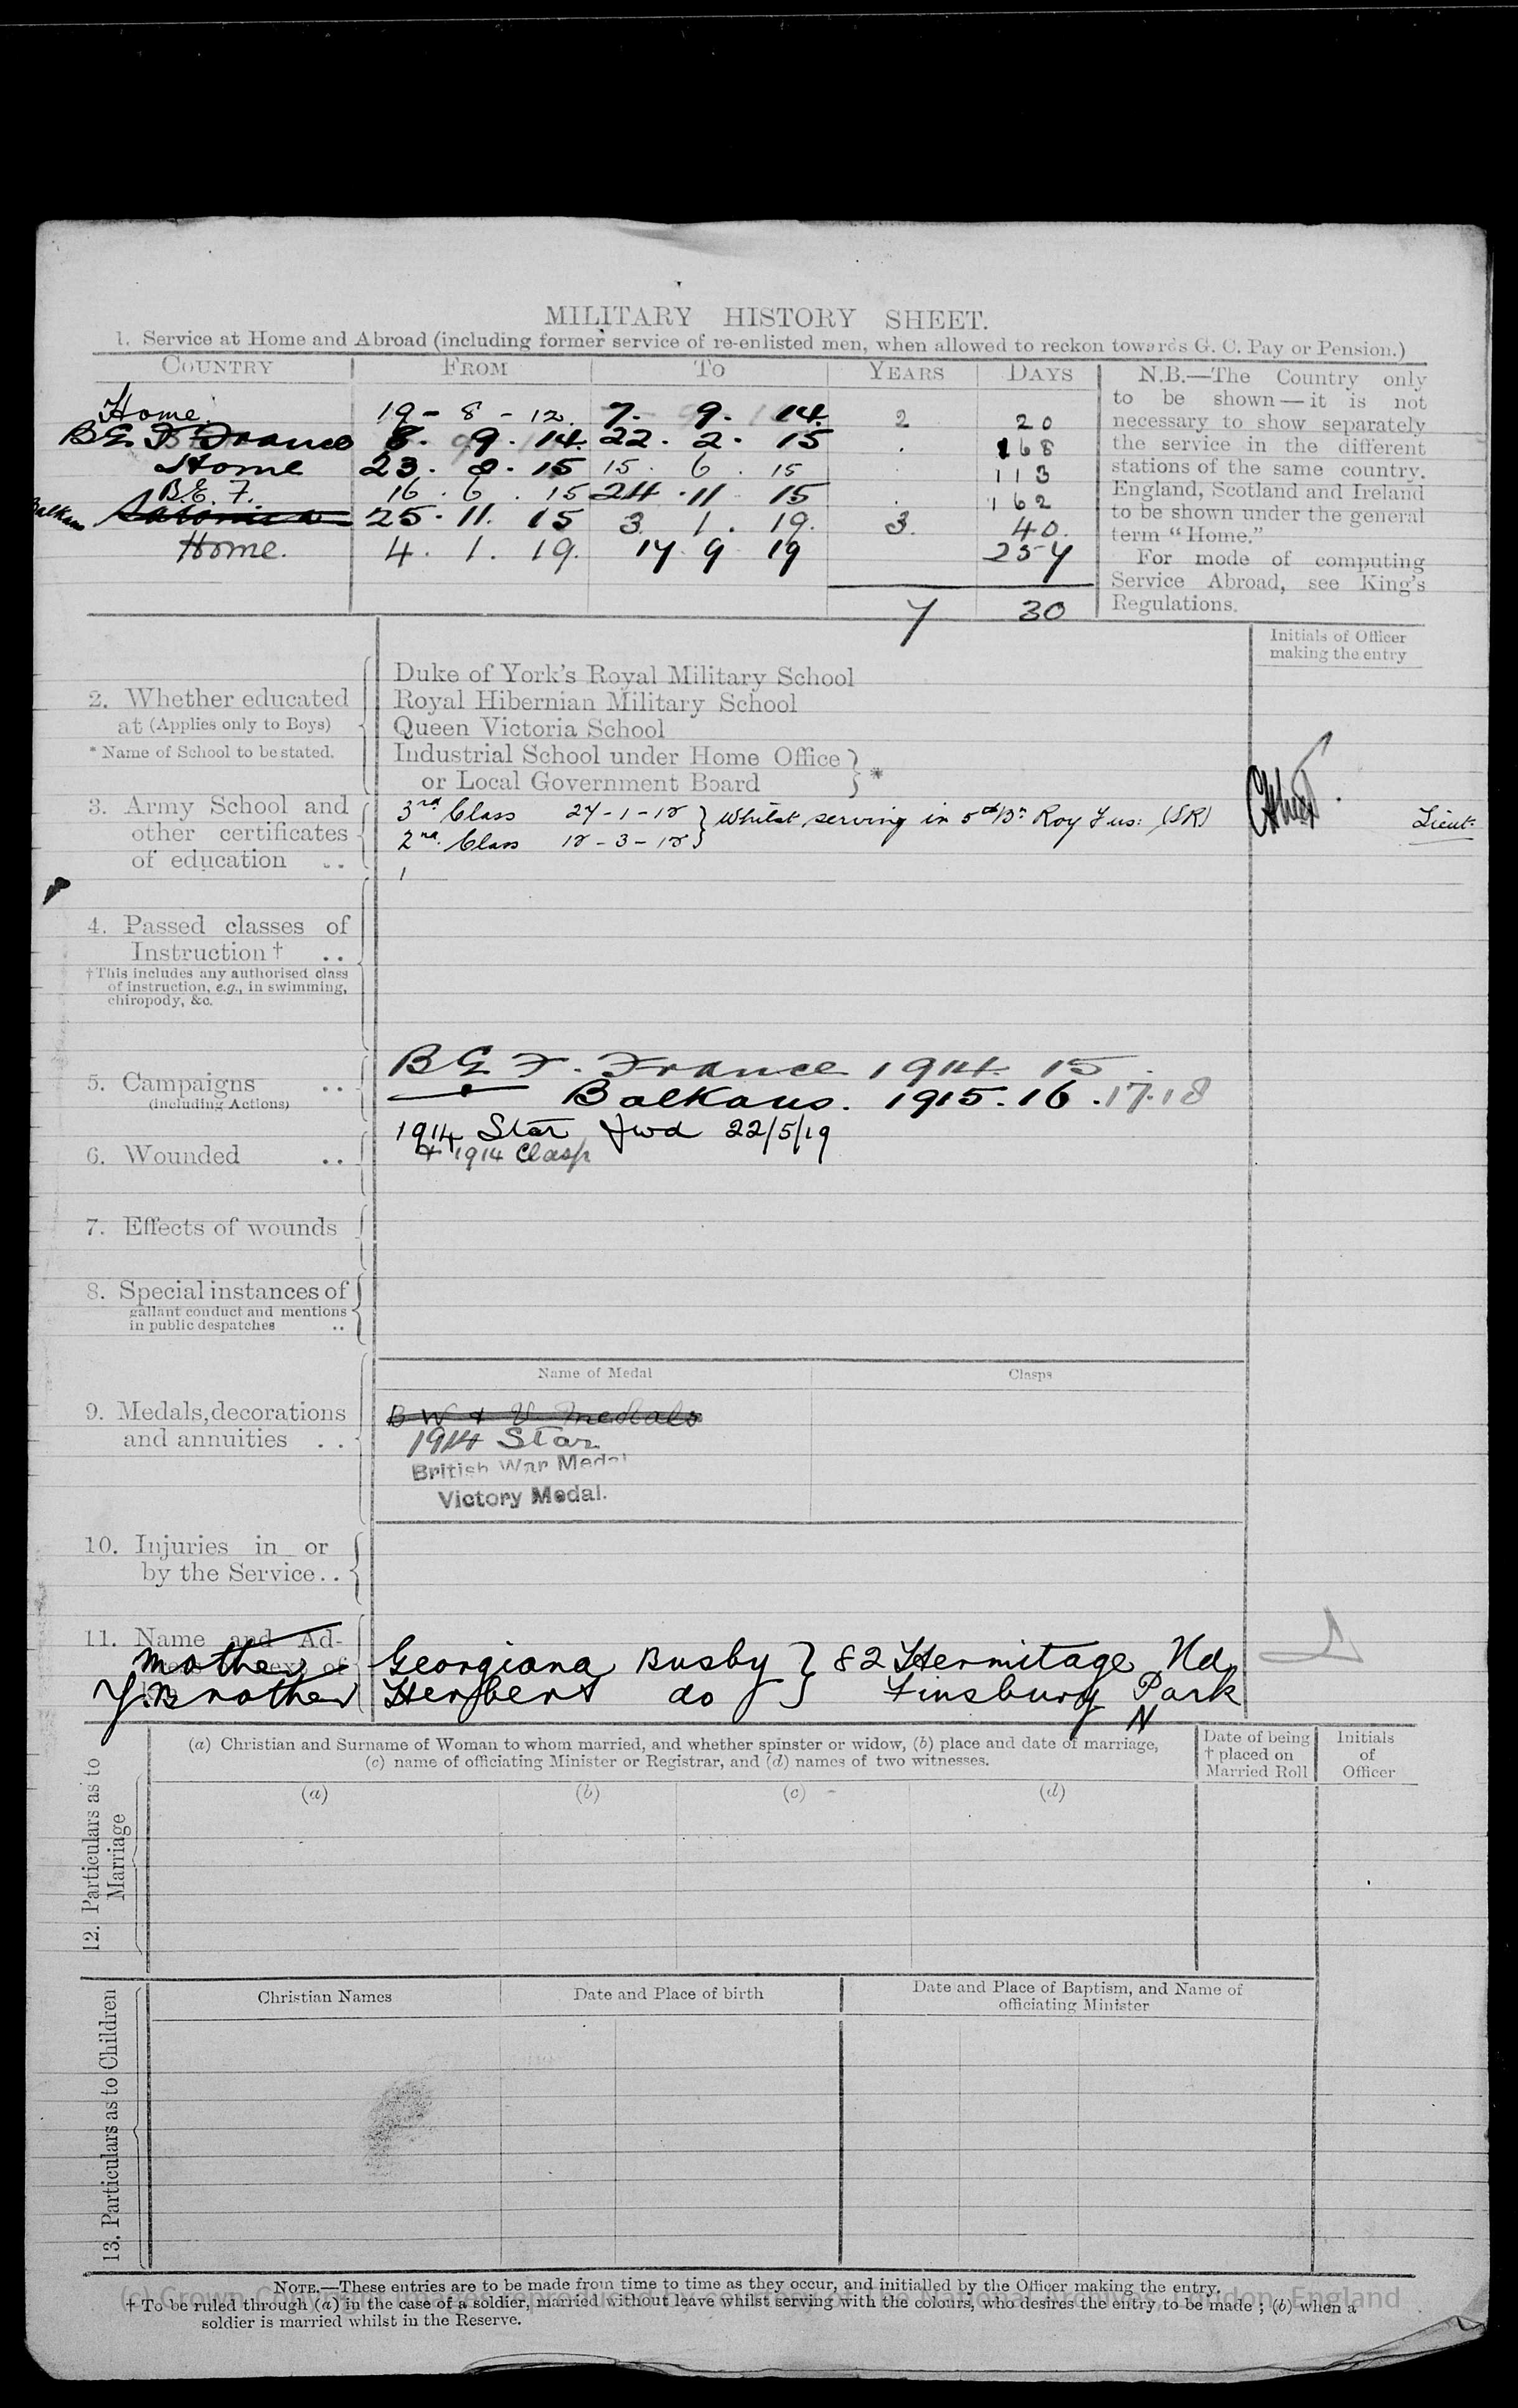 MILITARY HISTORY SHEET.
1. Service at Home and Abroad (including former service of re-enlisted men, when allowed to reckon towards G. C. Pay or Pension.)
COUNTRY FROM TO YEARS DAYS
Home 19 - 8 - 12 7. 9. 14. 2 20
B E F France 8. 9. 14. 22. 2. 15 . 168
Home 23. 2. 15 15. 6. 15 113
B.E.F. 16. 6. 15 24. 11 15 162
Balkan Salonica 25. 11. 15 3. 1. 19. 3. 40.
Home. 4. 1. 19. 17 9 19 257
7 30
N.B.—The Country only
to be shown—it is not
necessary to show separately
the service in the different
stations of the same country.
England, Scotland and Ireland
to be shown under the general
term "Home."
For mode of computing
Service Abroad, see King's
Regulations.
Initials of Officer
making the entry
2. Whether educated
at (Applies only to Boys)
* Name of School to be stated.
Duke of York's Royal Military School
Royal Hibernian Military School
Queen Victoria School
Industrial School under Home Office
or Local Government Board } *
3. Army School and
other certificates
of education ..
3rd Class 27-1-12 } Whilst serving in 5th Bn Roy Fus: (SR)
2nd Class 12-3-12 }
Lieut.
4. Passed classes of
Instruction † ..
† This includes any authorised class
of instruction, e.g., in swimming,
chiropody, &c.
5. Campaigns ..
(including Actions)
B E F. France 1914. 15.
Balkans. 1915. 16. 17. 18
6. Wounded ..
1914 Star fwd 22/5/19
+ 1914 Clasp
7. Effects of wounds
8. Special instances of
gallant conduct and mentions
in public despatches ..
Name of Medal Clasps
9. Medals, decorations
and annuities ..
B W & V. Medals
1914 Star
British War Medal
Victory Medal.
10. Injuries in or
by the Service..
11. Name and Ad-
Mother Georgiana Busby } 82 Hermitage Rd,
Y. Brother Herbert do } Finsbury Park
N
12. Particulars as to
Marriage
(a) Christian and Surname of Woman to whom married, and whether spinster or widow, (b) place and date of marriage,
(c) name of officiating Minister or Registrar, and (d) names of two witnesses.
Date of being
† placed on
Married Roll
Initials
of
Officer
(a) (b) (c) (d)
13. Particulars as to Children
Christian Names Date and Place of birth Date and Place of Baptism, and Name of
officiating Minister
NOTE.—These entries are to be made from time to time as they occur, and initialled by the Officer making the entry.
† To be ruled through (a) in the case of a soldier, married without leave whilst serving with the colours, who desires the entry to be made; (b) when a
soldier is married whilst in the Reserve.